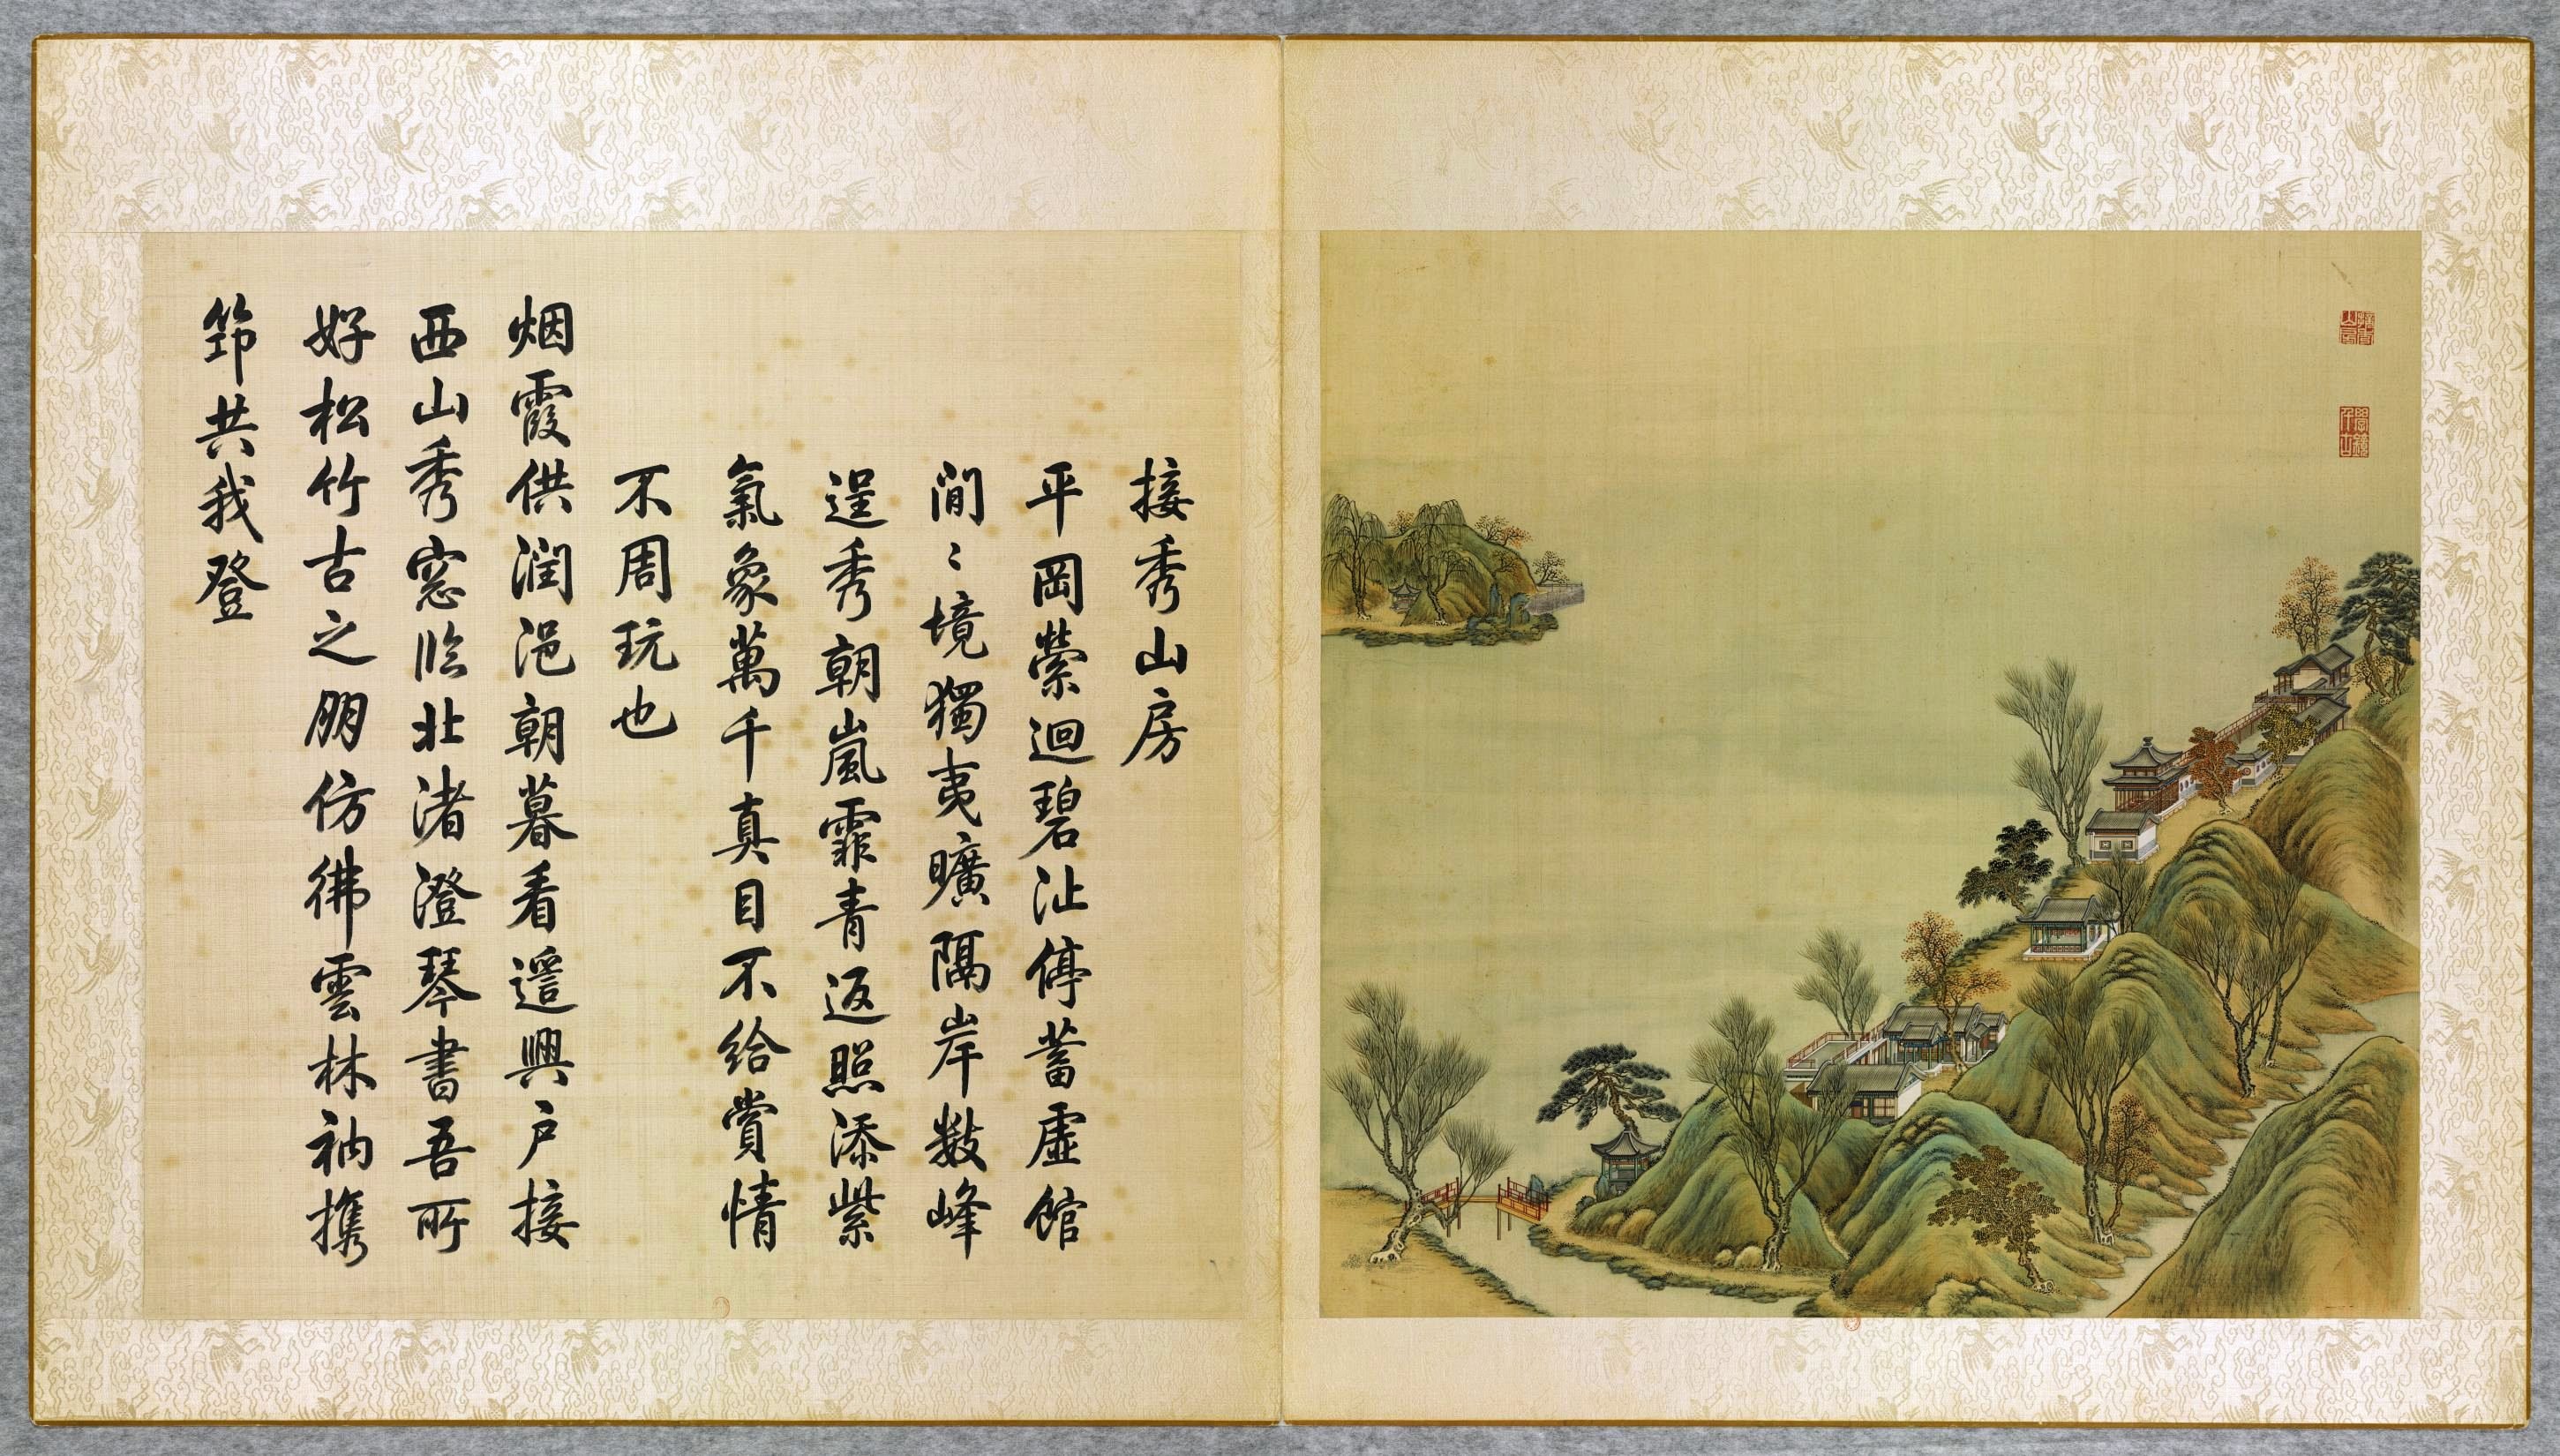 接秀山房
平岡縈迴碧沚停蓄虛館
閒〻境獨夷曠隔岸數峰
逞秀朝嵐霏青返照添紫
氣象萬千真目不給賞情
不周玩也
烟霞供潤浥朝暮看遥興户接
西山秀窓臨北渚澄琴書吾所
好松竹古之朋仿彿雲林衲攜
筇共我登